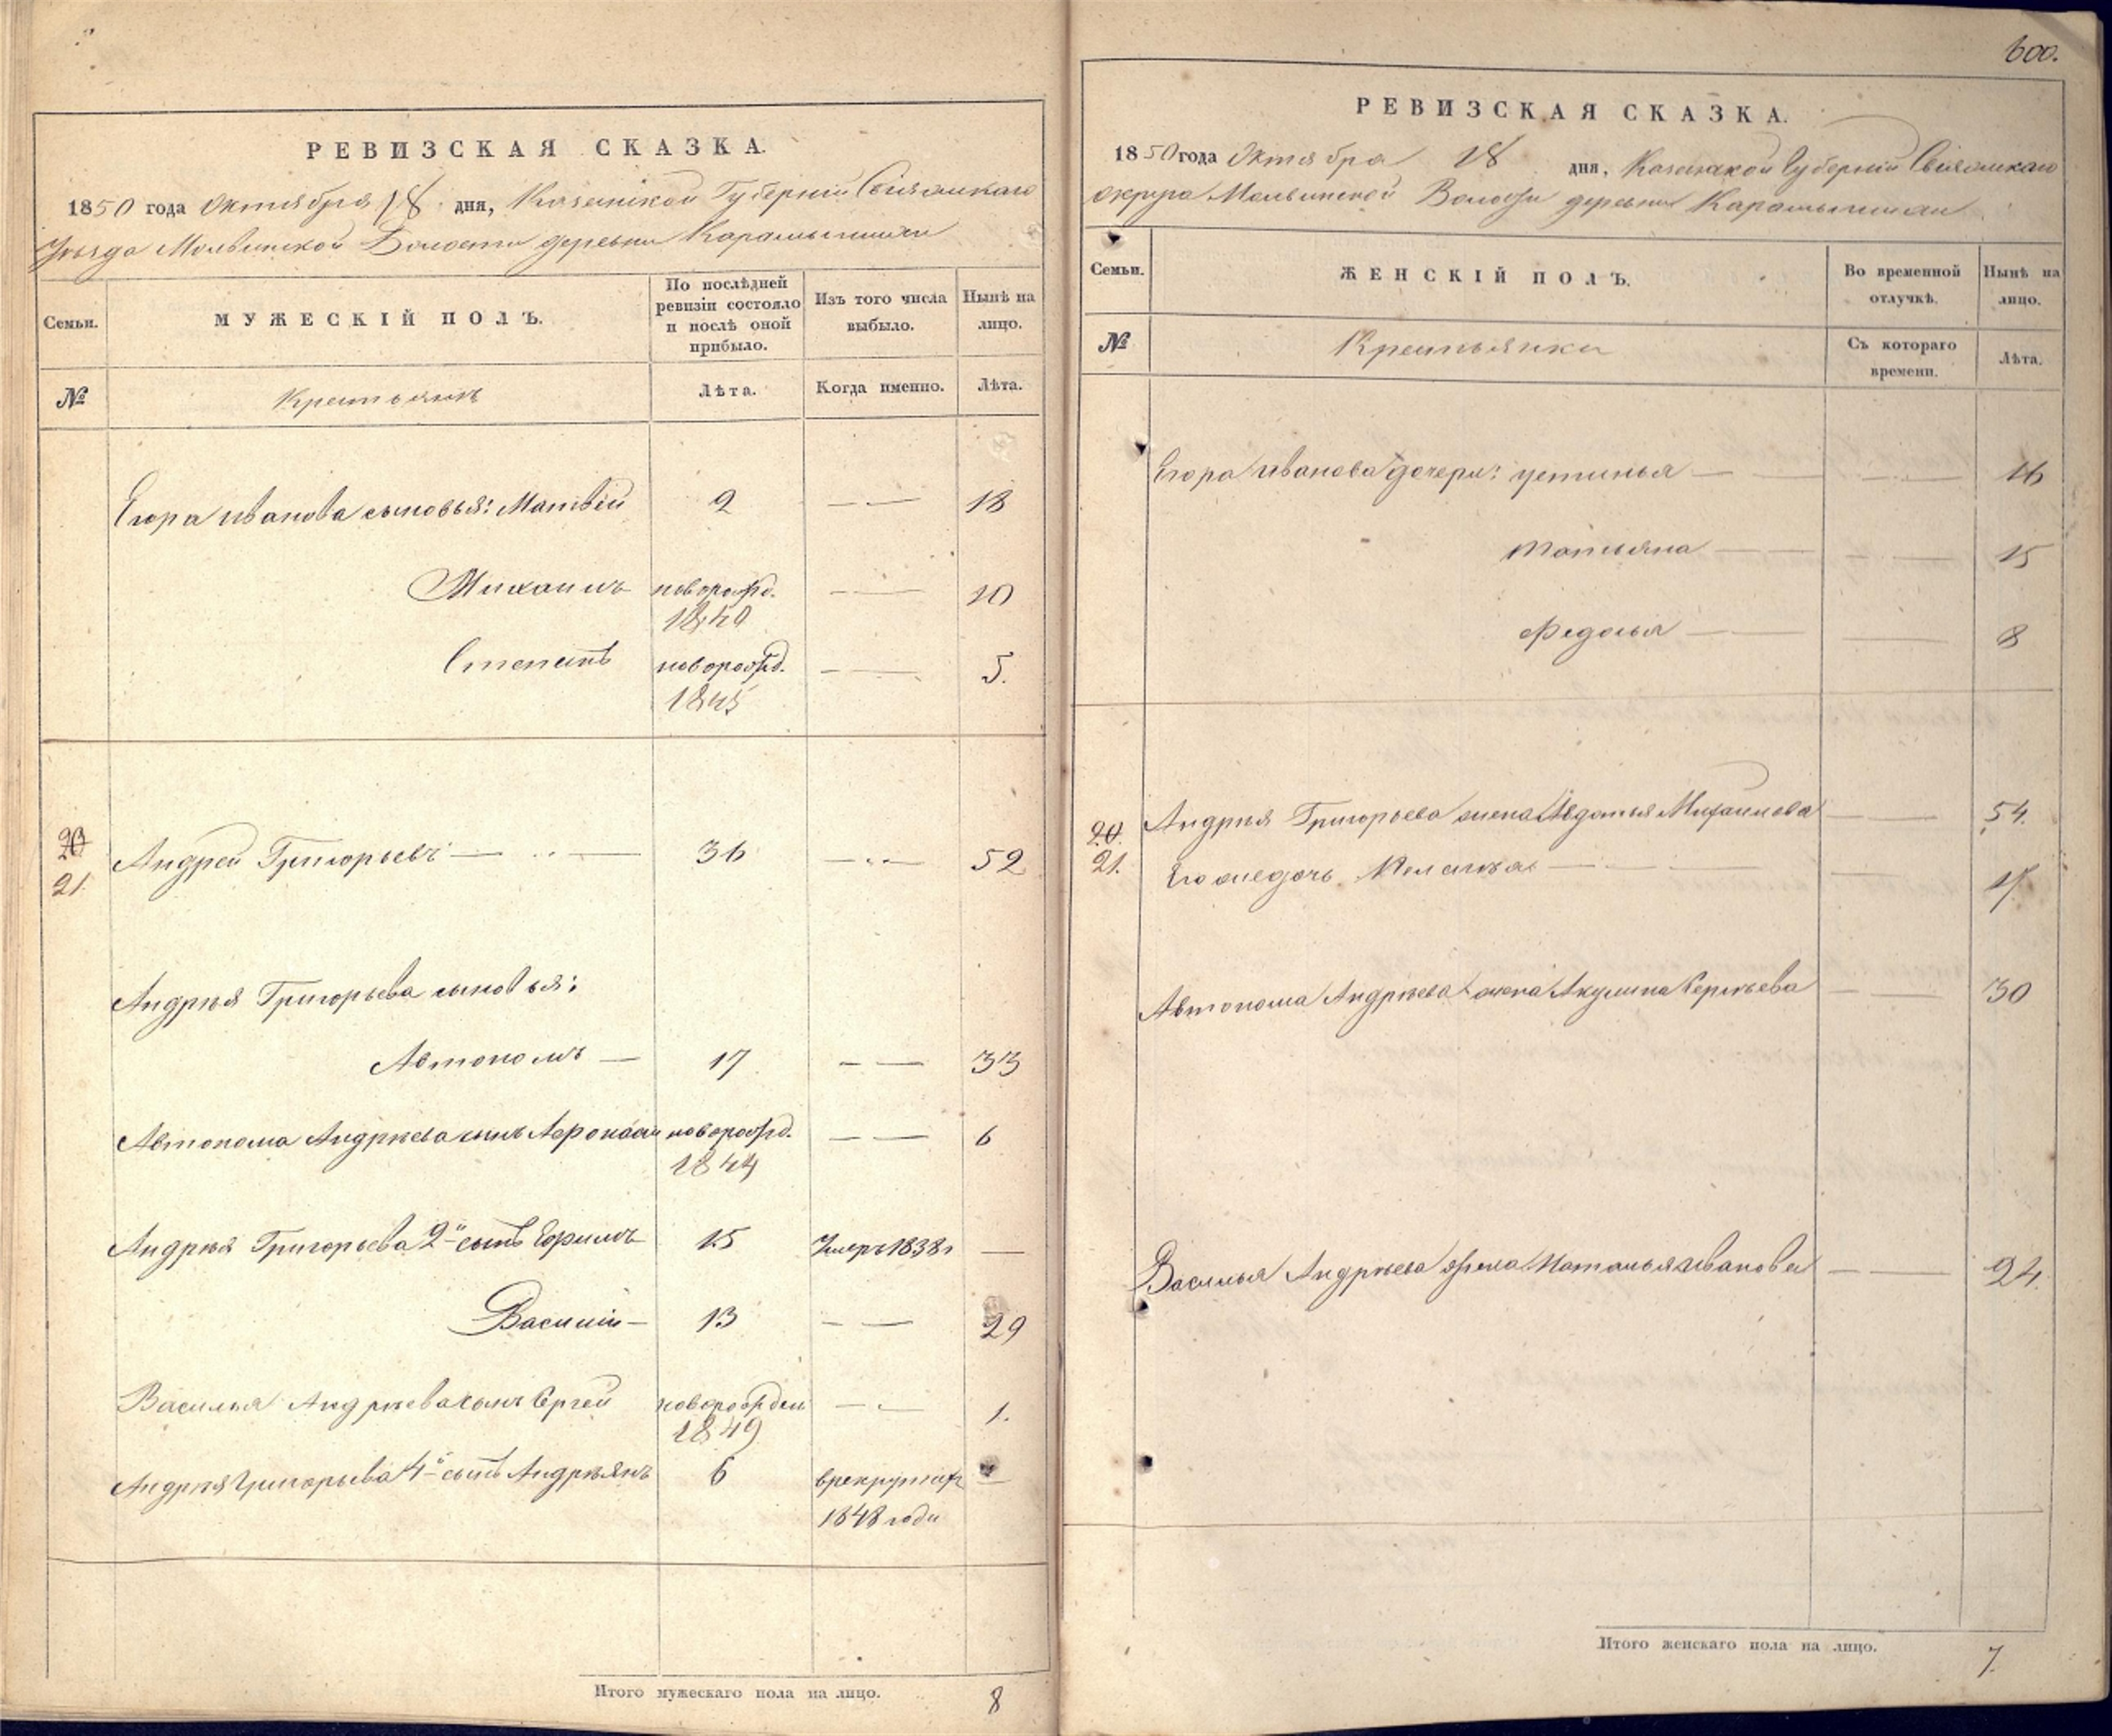 РЕВИЗСКАЯ СКАЗКА.
1850 года Октября 18 дня, Казанской Губернiи Свiяжскаго
Уѣзда Молвинской Волости деревни Карамышихи
Семьи.
МУЖЕСКІЙ ПОЛЪ.
По послѣдней ревизіи состояло и послѣ оной прибыло.
Изъ того числа выбыло.
Нынѣ на лицо.
№
Крестьянъ
Лѣта.
Когда именно.
Лѣта.
Егора Иванова сыновья: Матвѣй 2 — — 18
Михаилъ новорожд. — — 10
1840
Степанъ новорожд. — — 5.
1845
20
21. Андрей Григорьевъ — — 36 — — 52
Андрѣя Григорьева сыновья:
Автономъ — 17 — — 33
Автонома Андрѣева сынъ Афонасiй новорожд. — — 6
1844
Андрѣя Григорьева 2й сынъ Ефимъ 15 Умеръ 1838г —
Василiй — 13 — — 29
Василья Андрѣева сынъ Сергей новорожден — — 1.
1849
Андрѣя Григорьева 4й сынъ Андрѣянъ 6 в рекрутах —
1848 года
Итого мужескаго пола на лицо. 8
600.
РЕВИЗСКАЯ СКАЗКА.
1850 года Октября 18 дня, Казанской Губернiи Свiяжскаго
округа Молвинской Волости деревни Карамышихи
Семьи.
ЖЕНСКІЙ ПОЛЪ.
Во временной отлучкѣ.
Нынѣ на лицо.
№
Крестьянки
Съ котораго времени.
Лѣта.
Егора Иванова дочери: Устинья — — 16
Татьяна — — 15
Федосья — — 8
20. Андрѣя Григорьева жена Авдотья Михаилова — — 54.
21. Его же дочь — — 17.
Автонома Андрѣева жена Акулина Сергѣева — — 30
Василья Андрѣева жена Наталья Иванова — — 24.
Итого женскаго пола на лицо. 7.